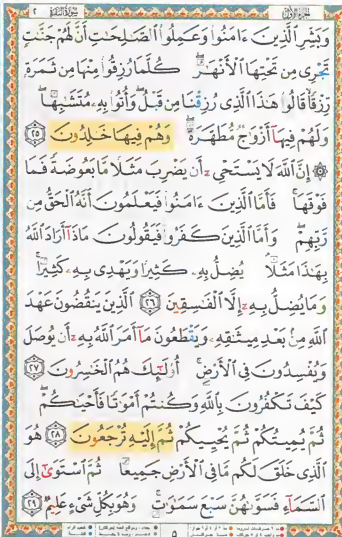 وَبَشِّرِ ٱلَّذِينَ ءَامَنُوا۟ وَعَمِلُوا۟ ٱلصَّـٰلِحَـٰتِ أَنَّ لَهُمْ جَنَّـٰتٍ
تَجْرِى مِن تَحْتِهَا ٱلْأَنْهَـٰرُ ۖ كُلَّمَا رُزِقُوا۟ مِنْهَا مِن ثَمَرَةٍ
رِّزْقًا ۙ قَالُوا۟ هَـٰذَا ٱلَّذِى رُزِقْنَا مِن قَبْلُ ۖ وَأُتُوا۟ بِهِۦ مُتَشَـٰبِهًا ۖ
وَلَهُمْ فِيهَآ أَزْوَٰجٌ مُّطَهَّرَةٌ ۖ وَهُمْ فِيهَا خَـٰلِدُونَ ٢٥
۞ إِنَّ ٱللَّهَ لَا يَسْتَحْىِۦٓ أَن يَضْرِبَ مَثَلًا مَّا بَعُوضَةً فَمَا
فَوْقَهَا ۚ فَأَمَّا ٱلَّذِينَ ءَامَنُوا۟ فَيَعْلَمُونَ أَنَّهُ ٱلْحَقُّ مِن
رَّبِّهِمْ ۖ وَأَمَّا ٱلَّذِينَ كَفَرُوا۟ فَيَقُولُونَ مَاذَآ أَرَادَ ٱللَّهُ
بِهَـٰذَا مَثَلًا ۘ يُضِلُّ بِهِۦ كَثِيرًا وَيَهْدِى بِهِۦ كَثِيرًا ۚ
وَمَا يُضِلُّ بِهِۦٓ إِلَّا ٱلْفَـٰسِقِينَ ٢٦ ٱلَّذِينَ يَنقُضُونَ عَهْدَ
ٱللَّهِ مِنۢ بَعْدِ مِيثَـٰقِهِۦ وَيَقْطَعُونَ مَآ أَمَرَ ٱللَّهُ بِهِۦٓ أَن يُوصَلَ
وَيُفْسِدُونَ فِى ٱلْأَرْضِ ۚ أُو۟لَـٰٓئِكَ هُمُ ٱلْخَـٰسِرُونَ ٢٧
كَيْفَ تَكْفُرُونَ بِٱللَّهِ وَكُنتُمْ أَمْوَٰتًا فَأَحْيَـٰكُمْ ۖ
ثُمَّ يُمِيتُكُمْ ثُمَّ يُحْيِيكُمْ ثُمَّ إِلَيْهِ تُرْجَعُونَ ٢٨ هُوَ
ٱلَّذِى خَلَقَ لَكُم مَّا فِى ٱلْأَرْضِ جَمِيعًا ثُمَّ ٱسْتَوَىٰٓ إِلَى
ٱلسَّمَآءِ فَسَوَّىٰهُنَّ سَبْعَ سَمَـٰوَٰتٍ ۚ وَهُوَ بِكُلِّ شَىْءٍ عَلِيمٌ ٢٩
٥